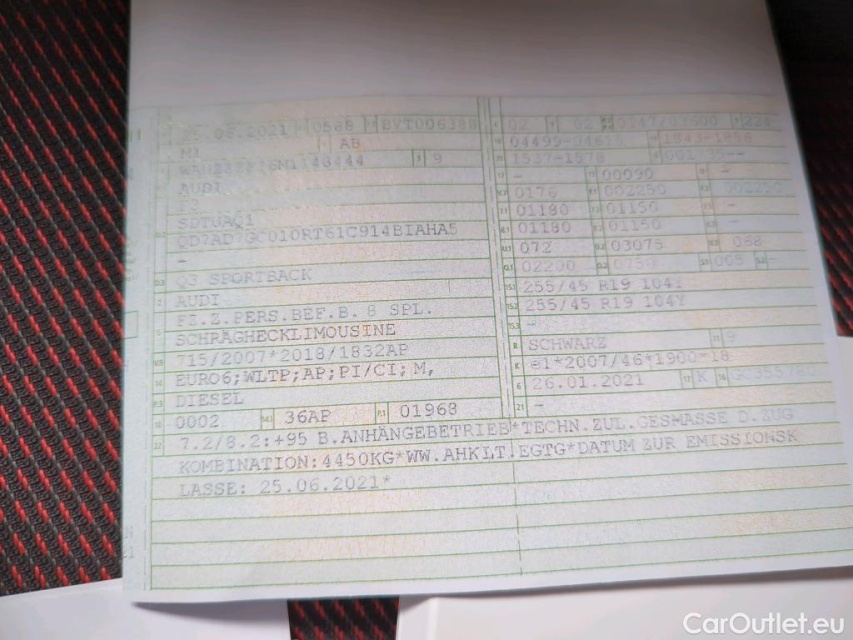 .06.2021 0588 BVT006388
M1 AB
9
AUDI
F3
SDTUAQ1
QD7AD7GC010RT61C914BIAHA5
-
Q3 SPORTBACK
AUDI
FZ.Z.PERS.BEF.B. 8 SPL.
SCHRÄGHECKLIMOUSINE
715/2007*2018/1832AP
EURO6;WLTP;AP;PI/CI; M,
DIESEL
0002 36AP 01968
02 02
1537-1578
- 00090 -
0176 002250
01180 01150 -
01180 01150 -
072 03075 068
02200 0750 005 -
255/45 R19 104Y
255/45 R19 104Y
-
SCHWARZ 9
e1*2007/46*1900*18
26.01.2021 K
-
7.2/8.2:+95 B.ANHÄNGEBETRIEB*TECHN.ZUL.GESMASSE D.ZUG
KOMBINATION:4450KG*WW.AHKLT.EGTG*DATUM ZUR EMISSIONSK
LASSE: 25.06.2021*
CarOutlet.eu